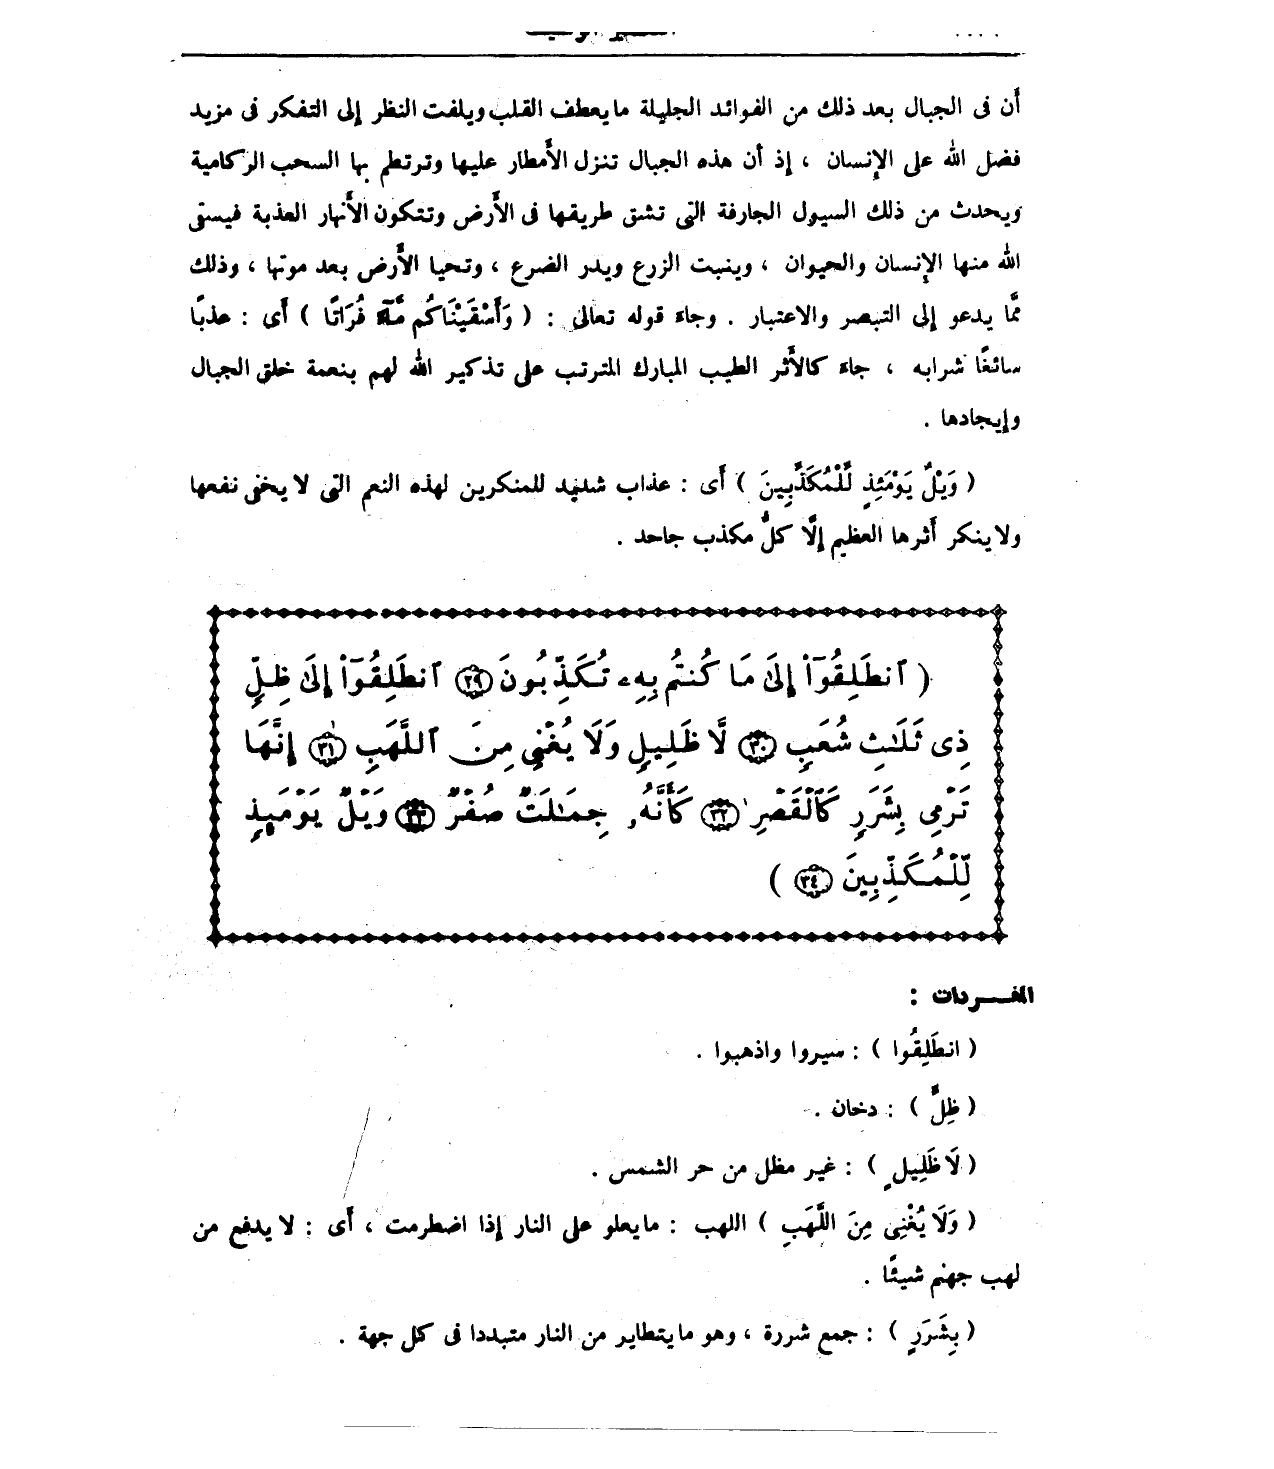 أن فى الجبال بعد ذلك من الفوائد الجليلة مايعطف القلب ويلفت النظر إلى التفكر فى مزيد
فضل الله على الإنسان ، إذ أن هذه الجبال تنزل الأمطار عليها وترتطم بها السحب الركامية
ويحدث من ذلك السيول الجارفة التى تشق طريقها فى الأرض وتتكون الأنهار العذبة فيستى
الله منها الإنسان والحيوان ، وينبت الزرع ويدر الضرع ، وتحيا الأرض بعد موتها ، وذلك
ممَّا يدعو إلى التبصر والاعتبار . وجاء قوله تعالى : ( وَأَسْقَيْنَاكُم مَّآءً فُرَاتًا ) أى : عذبًا
سائغًا شرابه ، جاء كالأثر الطيب المبارك المترتب على تذكير الله لهم بنعمة خلق الجبال
وإيجادها .
( وَيْلٌ يَوْمَئِذٍ لِّلْمُكَذِّبِينَ ) أى : عذاب شديد للمنكرين لهذه النعم التى لا يخفى نفعها
ولا ينكر أثرها العظيم إلَّا كلُّ مكذب جاحد .
( ٱنطَلِقُوٓا۟ إِلَىٰ مَا كُنتُم بِهِۦ تُكَذِّبُونَ ٢٩ ٱنطَلِقُوٓا۟ إِلَىٰ ظِلٍّ
ذِى ثَلَـٰثِ شُعَبٍ ٣٠ لَّا ظَلِيلٍ وَلَا يُغْنِى مِنَ ٱللَّهَبِ ٣١ إِنَّهَا
تَرْمِى بِشَرَرٍ كَٱلْقَصْرِ ٣٢ كَأَنَّهُۥ جِمَـٰلَتٌ صُفْرٌ ٣٣ وَيْلٌ يَوْمَئِذٍ
لِّلْمُكَذِّبِينَ ٣٤ )
المفـردات :
( انطَلِقُوا ) : سيروا واذهبوا .
( ظِلٍّ ) : دخان .
( لَا ظَلِيلٍ ) : غير مظل من حر الشمس .
( وَلَا يُغْنِى مِنَ اللَّهَبِ ) اللهب : مايعلو على النار إذا اضطرمت ، أى : لا يدفع من
لهب جهنم شيئًا .
( بِشَرَرٍ ) : جمع شررة ، وهو مايتطاير من النار متبددا فى كل جهة .